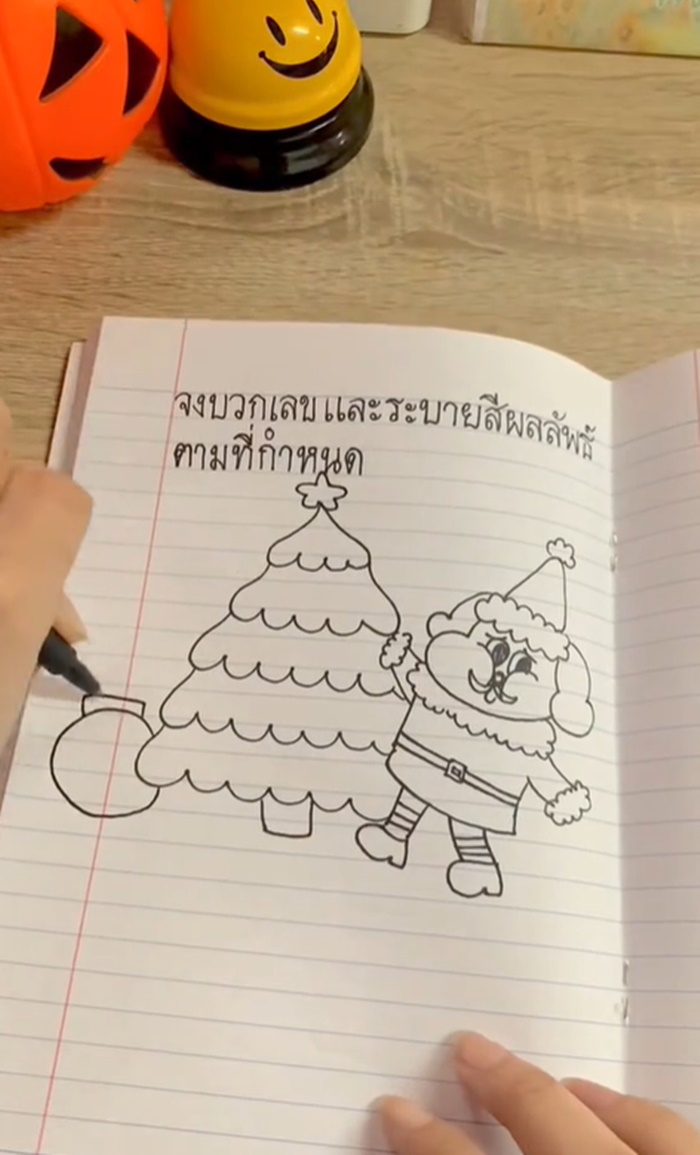 จงบวกเลขและระบายสีผลลัพธ์
ตามที่กำหนด